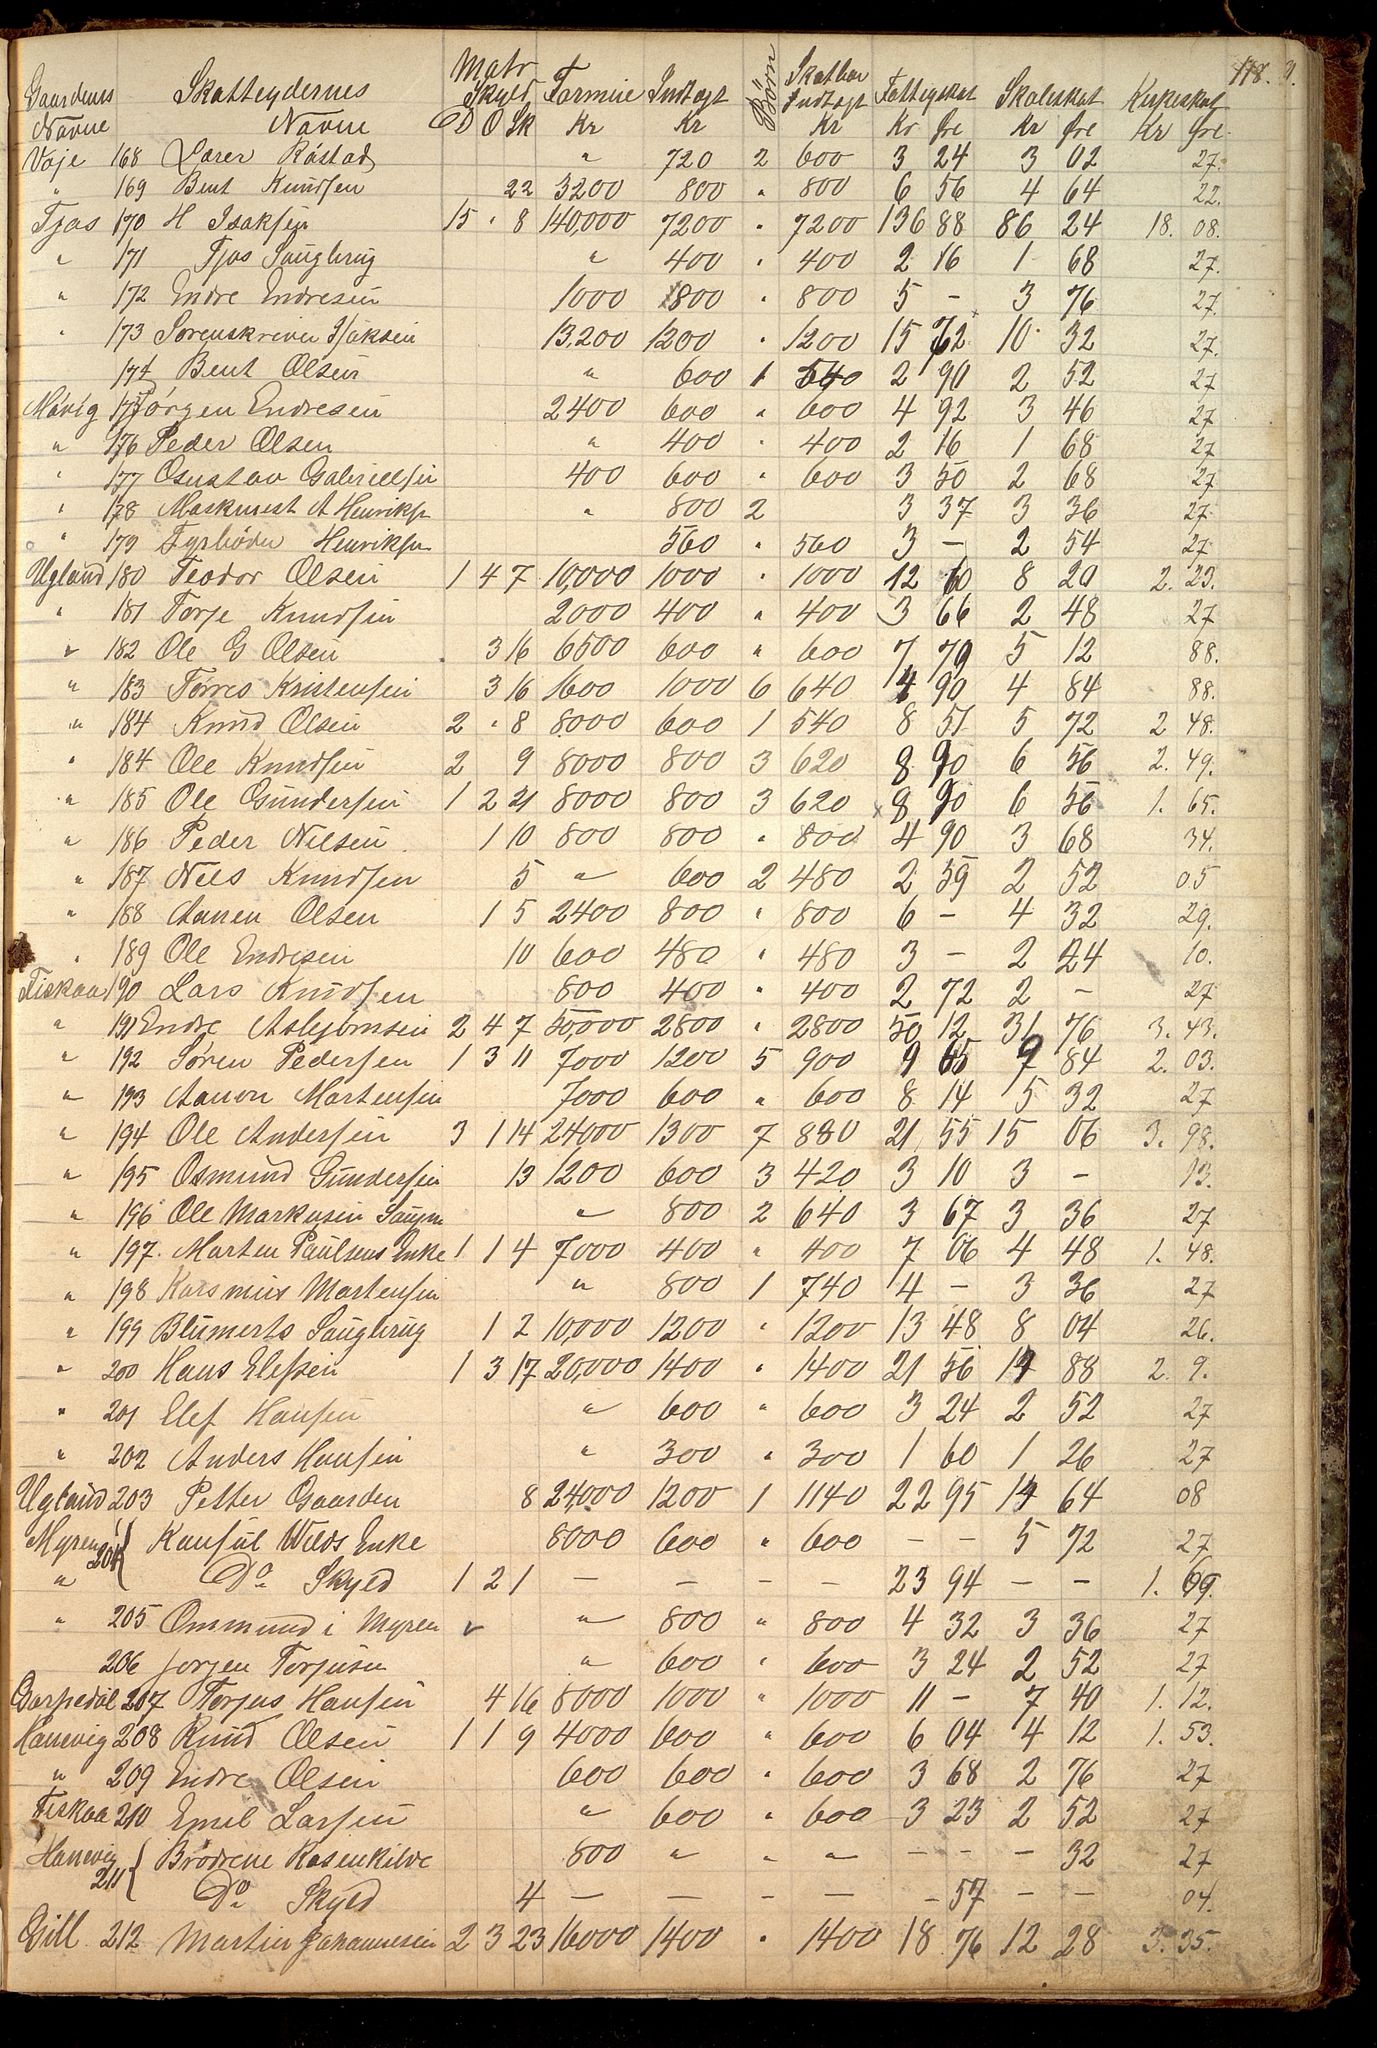 118.
Gaardens Navne Skatteydernes Navne Matr Skyld D O Sk Formue Kr Indtægt Kr Börn Skatbar Indtægt Kr Fattigskat Kr Øre Skoleskat Kr Øre Kirkeskat Kr Øre
Voje 168 Lærer Råstad " 720 2 600 3 24 3 02 27
" 169 Bent Knudsen 22 3200 800 " 800 6 56 4 64 22.
Tjøs 170 H Isaksen 15 " 8 140,000 7200 " 7200 136 88 86 24 18. 08.
" 171 Tjøs Saugbrug " 400 " 400 2 16 1 68 27.
" 172 Endre Endresen 1000 800 " 800 5 – 3 76 27.
" 173 Sorenskriver Isaksen 13,200 1200 " 1200 15 72 10 32 27.
174 Bent Olsen " 600 1 540 2 90 2 52 27
Måvig 175 Jörgen Endresen 2400 600 " 600 4 92 3 46 27
" 176 Peder Olsen " 400 " 400 2 16 1 68 27
" 177 Gustav Gabrielsen 400 600 " 600 3 50 2 68 27
" 178 Maskmest A Henriksn " 800 2 3 37 3 36 27
" 179 Fyrböder Henriksen 560 " 560 3 – 2 54 27
Ugland 180 Teodor Olsen 1 4 7 10,000 1000 " 1000 12 60 8 20 2. 23.
" 181 Torje Knudsen 2000 400 " 400 3 66 2 48 27
" 182 Ole G Olsen 3 16 6500 600 " 600 7 79 5 12 88.
" 183 Törres Kristensen 3 16 1600 1000 6 640 4 90 4 84 88.
" 184 Knud Olsen 2 " 8 8000 600 1 540 8 51 5 72 2 48.
" 184 Ole Knudsen 2 9 8000 800 3 620 8 90 6 56 2. 49.
" 185 Ole Gundersen 1 2 21 8000 800 3 620 8 90 6 56 1. 65.
" 186 Peder Nilsen 1 10 800 800 " 800 4 90 3 68 34.
" 187 Nils Knudsen 5 " 600 2 480 2 59 2 52 05
" 188 Aanen Olsen 1 5 2400 800 " 800 6 – 4 32 29.
" 189 Ole Endresen 10 600 480 " 480 3 – 2 24 10.
Fiskaa 190 Lars Knudsen 800 400 " 400 2 72 2 – 27
" 191 Endre Asbjörnsen 2 4 7 50,000 2800 " 2800 50 12 31 76 3. 43.
" 192 Sören Pedersen 1 3 11 7000 1200 5 900 9 65 9 84 2. 03.
" 193 Aanon Martensen 7000 600 " 600 8 14 5 32 27
" 194 Ole Andersen 3 1 14 24000 1300 7 880 21 55 15 06 3. 98.
" 195 Osmund Gundersen 13 1200 600 3 420 3 10 3 – 13.
" 196 Ole Markusen Saugm " 800 2 640 3 67 3 36 27
" 197. Morten Paulsens Enke 1 1 4 7000 400 " 400 7 06 4 48 1. 48.
" 198 Rasmus Martensen " 800 1 740 4 – 3 36 27
" 199 Blumerts Saugbrug 1 2 10,000 1200 " 1200 13 48 8 04 26.
" 200 Hans Elefsen 1 3 17 20,000 1400 " 1400 21 56 88 2. 9.
" 201 Elef Hansen " 600 " 600 3 24 2 52 27
" 202 Anders Hansen " 300 " 300 1 60 1 26 27
Ugland 203 Petter Gaarden 8 24,000 1200 1 1140 22 95 14 64 08
Myren 204 { Konsul Wilds Enke 8000 600 " 600 – – 5 72 27
" Do Skyld 1 2 1 – – – – 23 94 – – 1. 69.
" 205 Ommund i Myren " 800 " 800 4 32 3 36 27
206 Jorgen Torjusen " 600 " 600 3 24 2 52 27
Garpedal 207 Torjus Hansen 4 16 8000 1000 " 1000 11 – 7 40 1. 12.
Hanevig 208 Knud Olsen 1 1 9 4000 600 " 600 6 04 4 12 1. 53.
" 209 Endre Olsen 600 600 " 600 3 68 2 76 27
Fiskaa 210 Emil Larsen " 600 " 600 3 23 2 52 27
Hanevig 211 { Brödrene Rosenkilde 800 " " " – – – 32 27
Do Skyld 4 – – – – – 57 – – 04.
Gill 212 Martin Johannesen 2 3 23 16000 1400 " 1400 18 76 12 28 3. 35.